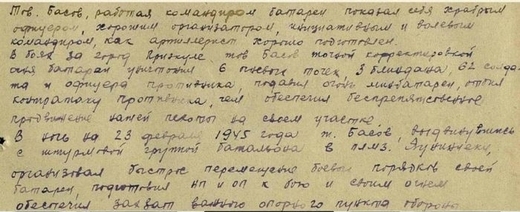 Тов. Басов, работая командиром батареи показал себя храбрым
офицером, хорошим организатором, инициативным и волевым
командиром, как артиллерист хорошо подготовлен.
В боях за город Приекуле тов Басов точной корректировкой
огня батареи уничтожил 6 пневых точек, 3 блиндажа, 62 солда-
та и офицера противника, подавил огонь минбатареи, отбил
контратаку противника, чем обеспечил беспрепятственное
продвижение нашей пехоты на своем участке
В ночь на 23 февраля 1945 года т. Басов, выдвинувшись
с штурмовой группой батальона в р.
организовал быстрое перемещение боевых порядков своей
батареи, подготовил НП и ОП к бою и своим огнем
обеспечил захват важного опорного пункта обороны